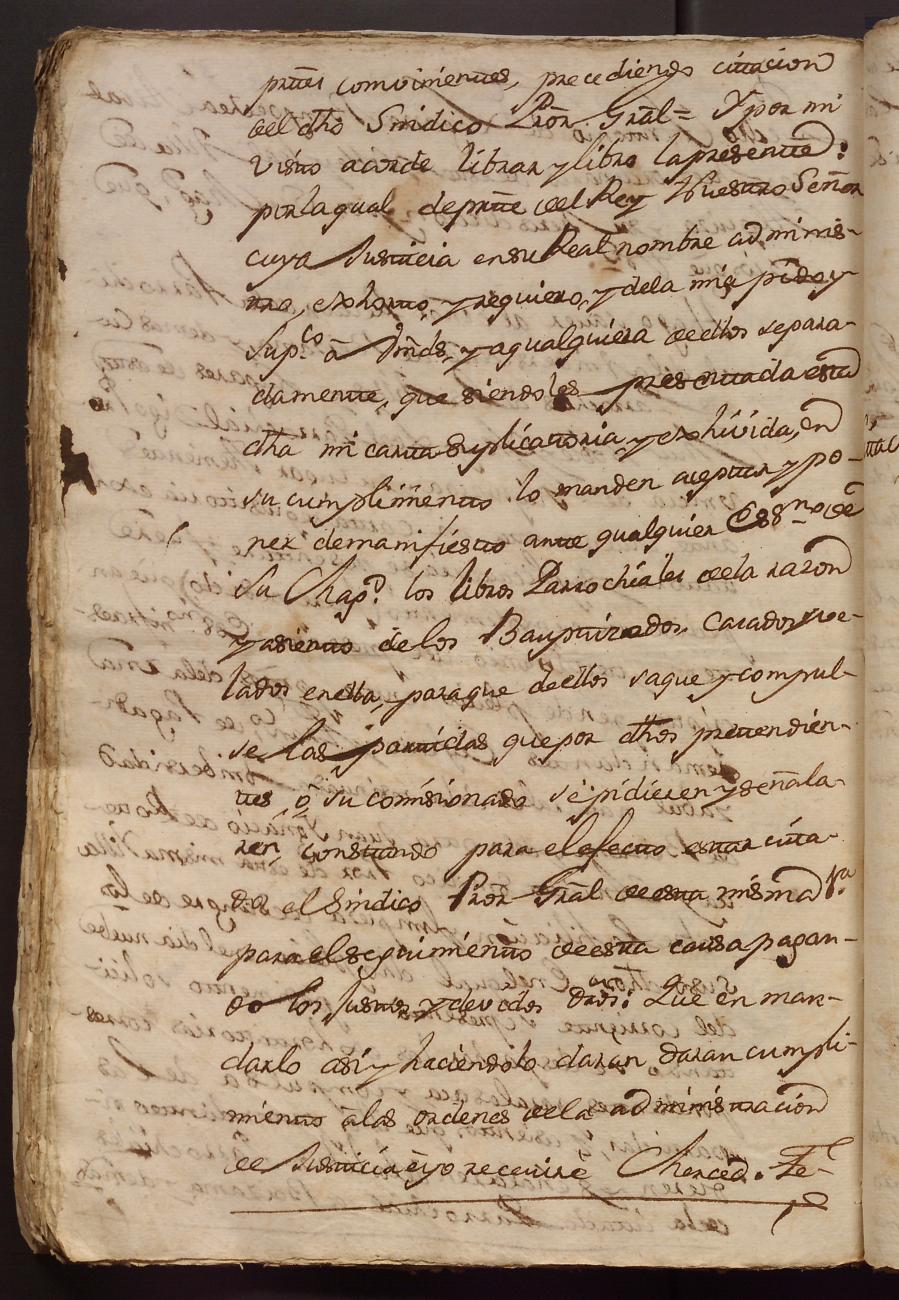 prttes combinientes, precediendo cittacion
del dho Sindico Prōr. Grāl = Y por mi
visto acorde librar y libro la presentte:
por la qual departte del Rey Nuestro Señor
cuya Justticia en su Real nombre adminis-
tra, exhortto, y requiero, y dela mia pido y
Sup.co â Vmds, y a qualquiera deellos separa-
damentte, que siendoles presenttada estta
dha mi cartta suplicattoria y exhivida, en
su cumplimientto lo manden azeptar y po-
ner demanifiestto antte qualquier Esno de
Su Mag.d los libros Parrochiales dela razon
y asientto delos Bauptizados, Casados y ve-
lados enella, para que deellos saque y compul-
se las parttidas que por dhos prettendien-
ttes, ô su comisionado se pidieren y señala-
ren, consttando para el efectto esttar citta-
do el Sindico Prōr Grāl deestta misma V.a
para el seguimientto deestta causa pagan-
do los Justtos y devidos drōs: Que en man-
darlo asi y haciendolo daran daran cumpli-
mientto âlas ordenes dela administtracion
de Justticia, è yo recevire Merced. Fe-